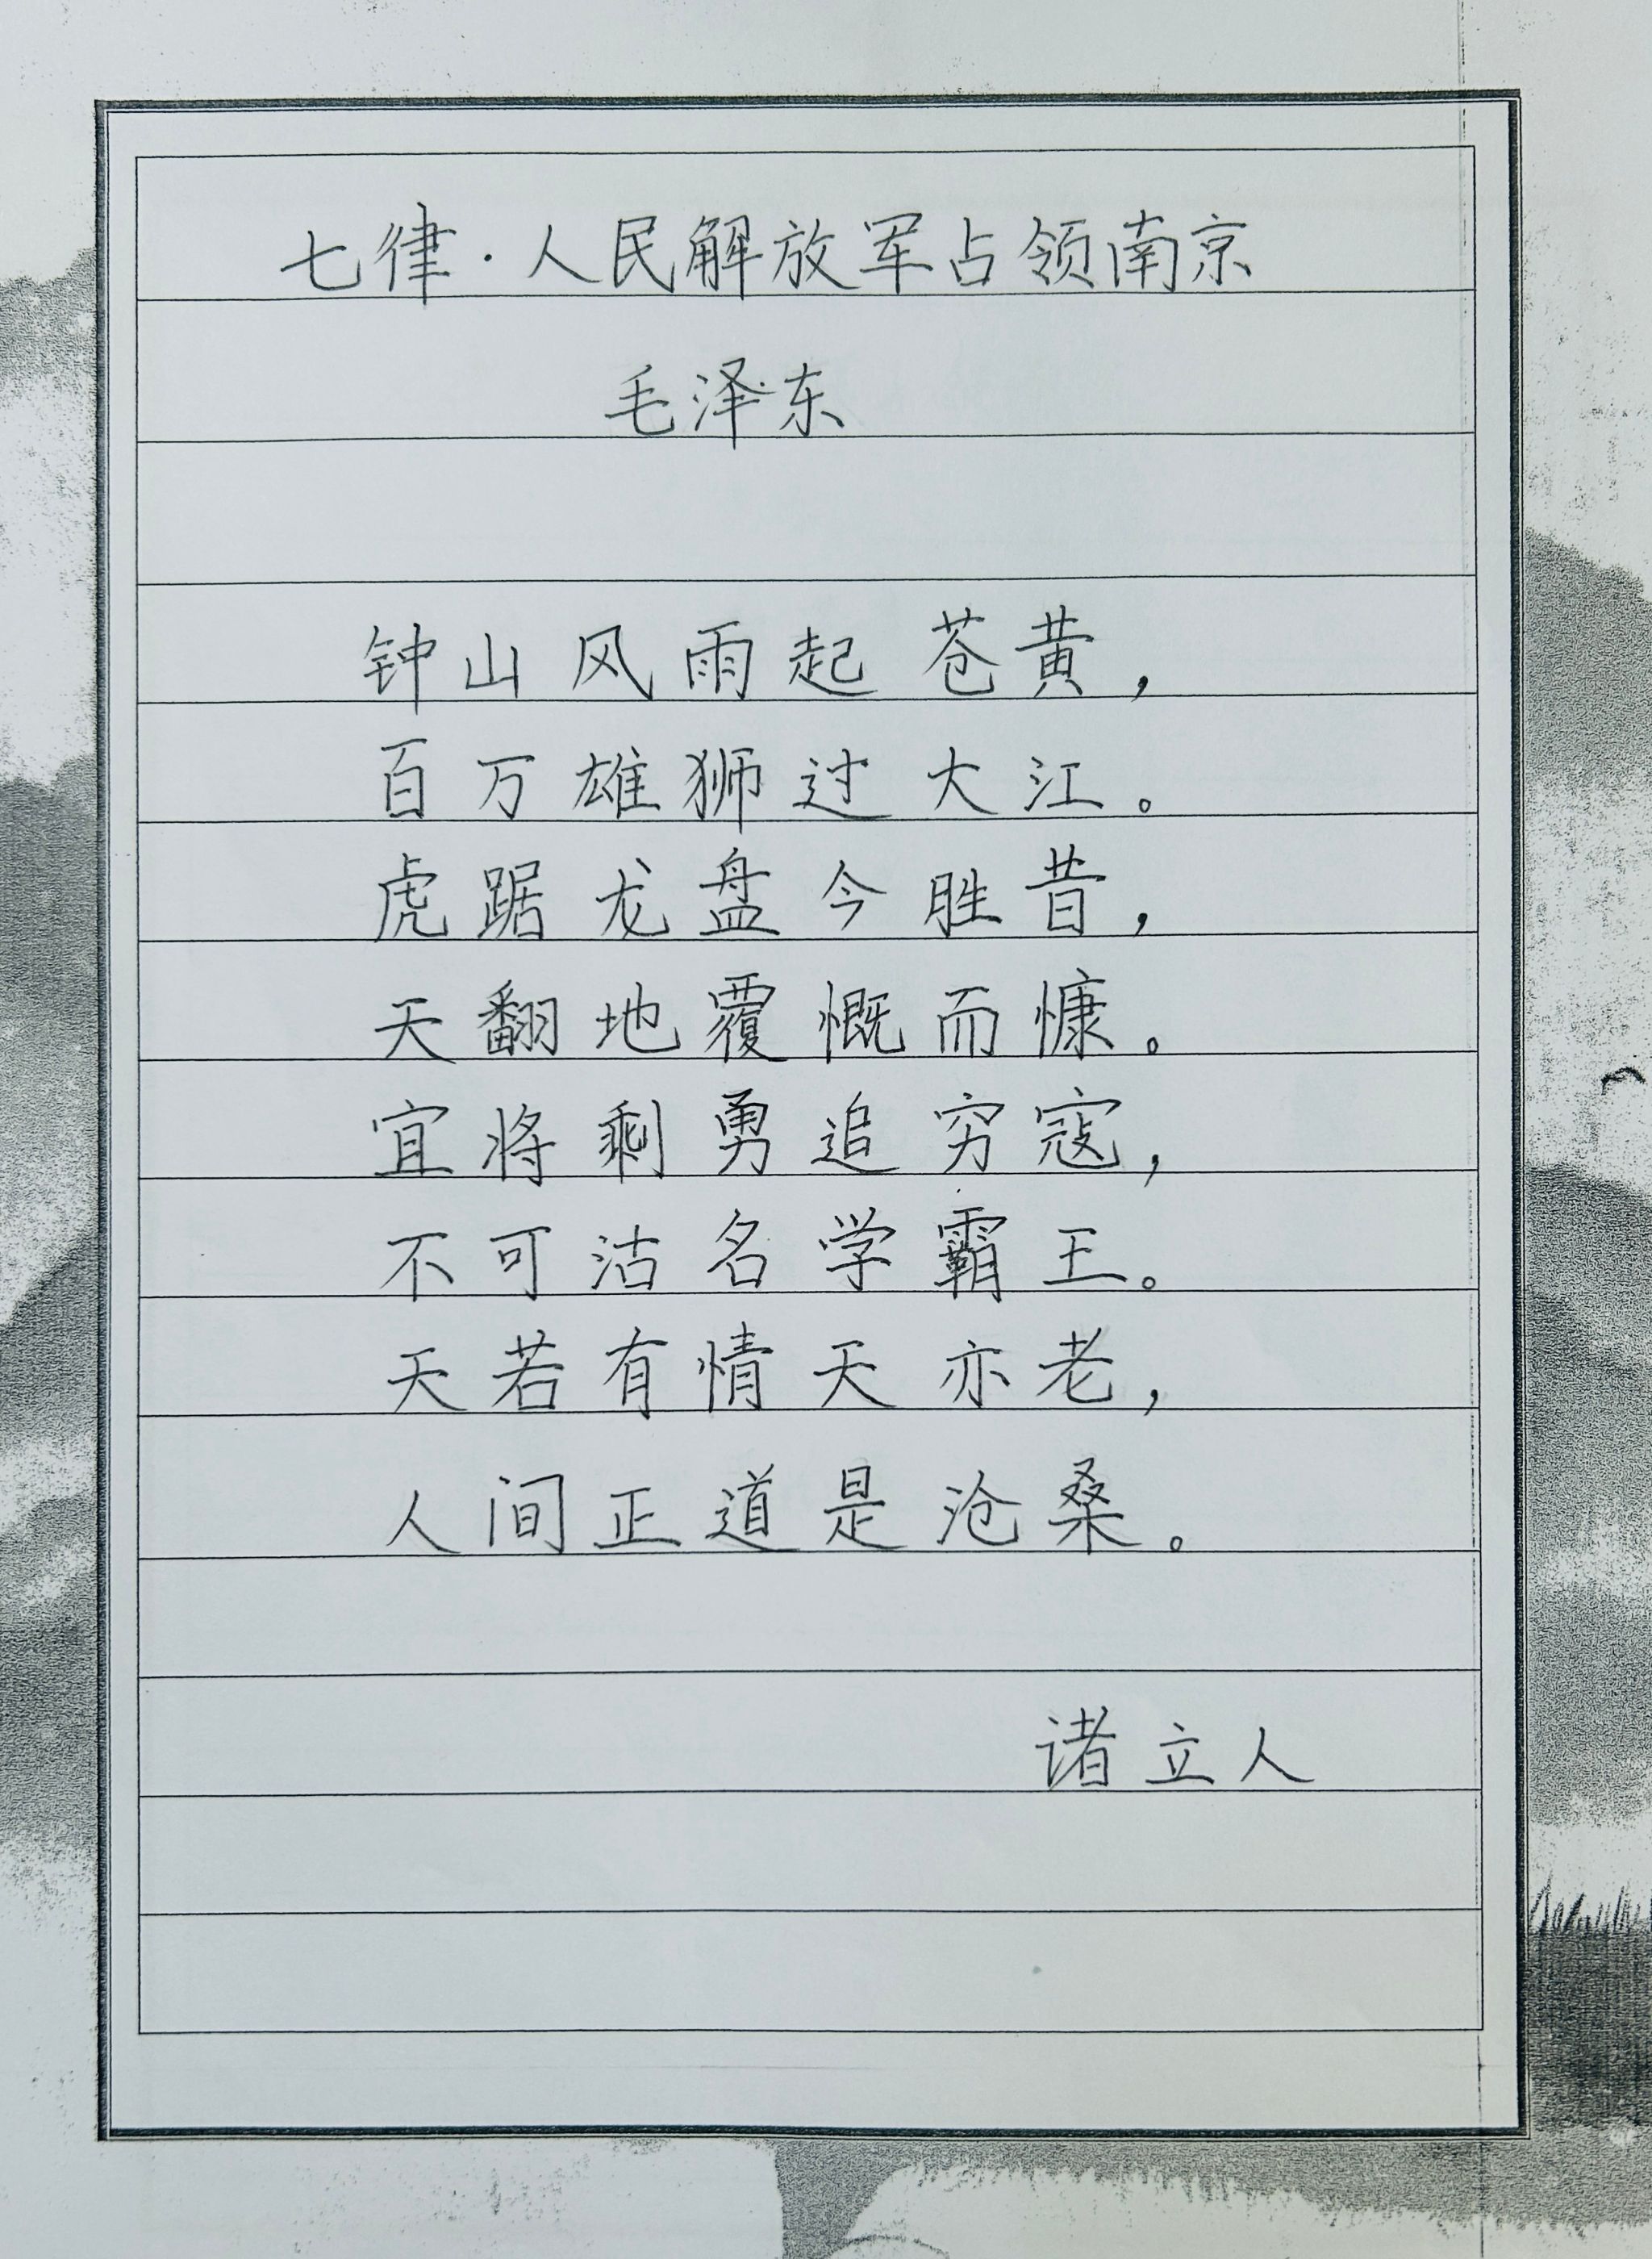 七律·人民解放军占领南京
毛泽东
钟山风雨起苍黄，
百万雄狮过大江。
虎踞龙盘今胜昔，
天翻地覆慨而慷。
宜将剩勇追穷寇，
不可沽名学霸王。
天若有情天亦老，
人间正道是沧桑。
诸立人